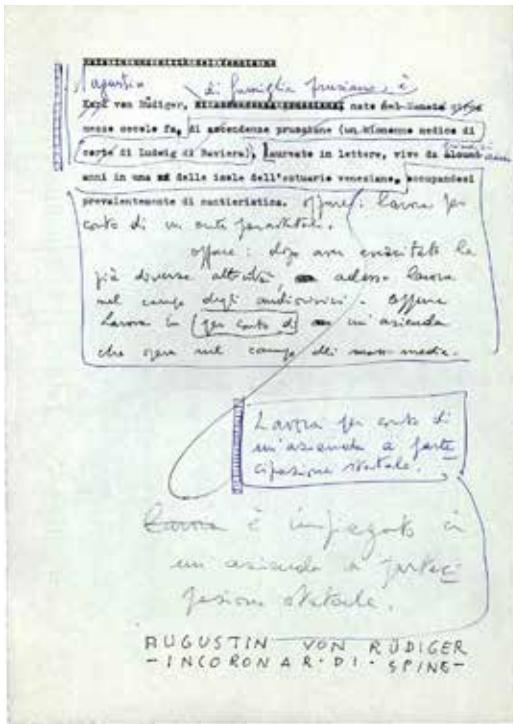 Agustin di famiglia prussiana, è
Karl von Rüdiger, nato nel Veneto circa
mezzo secolo fa, di ascendenze prussiane (un bisnonno medico di
corte di Ludwig di Baviera), laureato in lettere, vive da alcuni
anni in una delle isole dell'estuario veneziano, occupandosi
prevalentemente di cantieristica. oppure: lavora per
conto di un ente parastatale.
oppure: dopo aver esercitato le
più diverse attività, adesso lavora
nel campo degli audiovisivi. oppure
lavora in (per conto di) un'azienda
che opera nel campo dei mass-media.
Lavora per conto di
un'azienda a parte
cipazione statale.
Lavora è impiegato in
un'azienda a parteci
pazione statale.
AUGUSTIN VON RÜDIGER
-INCORONAR·DI·SPINE-